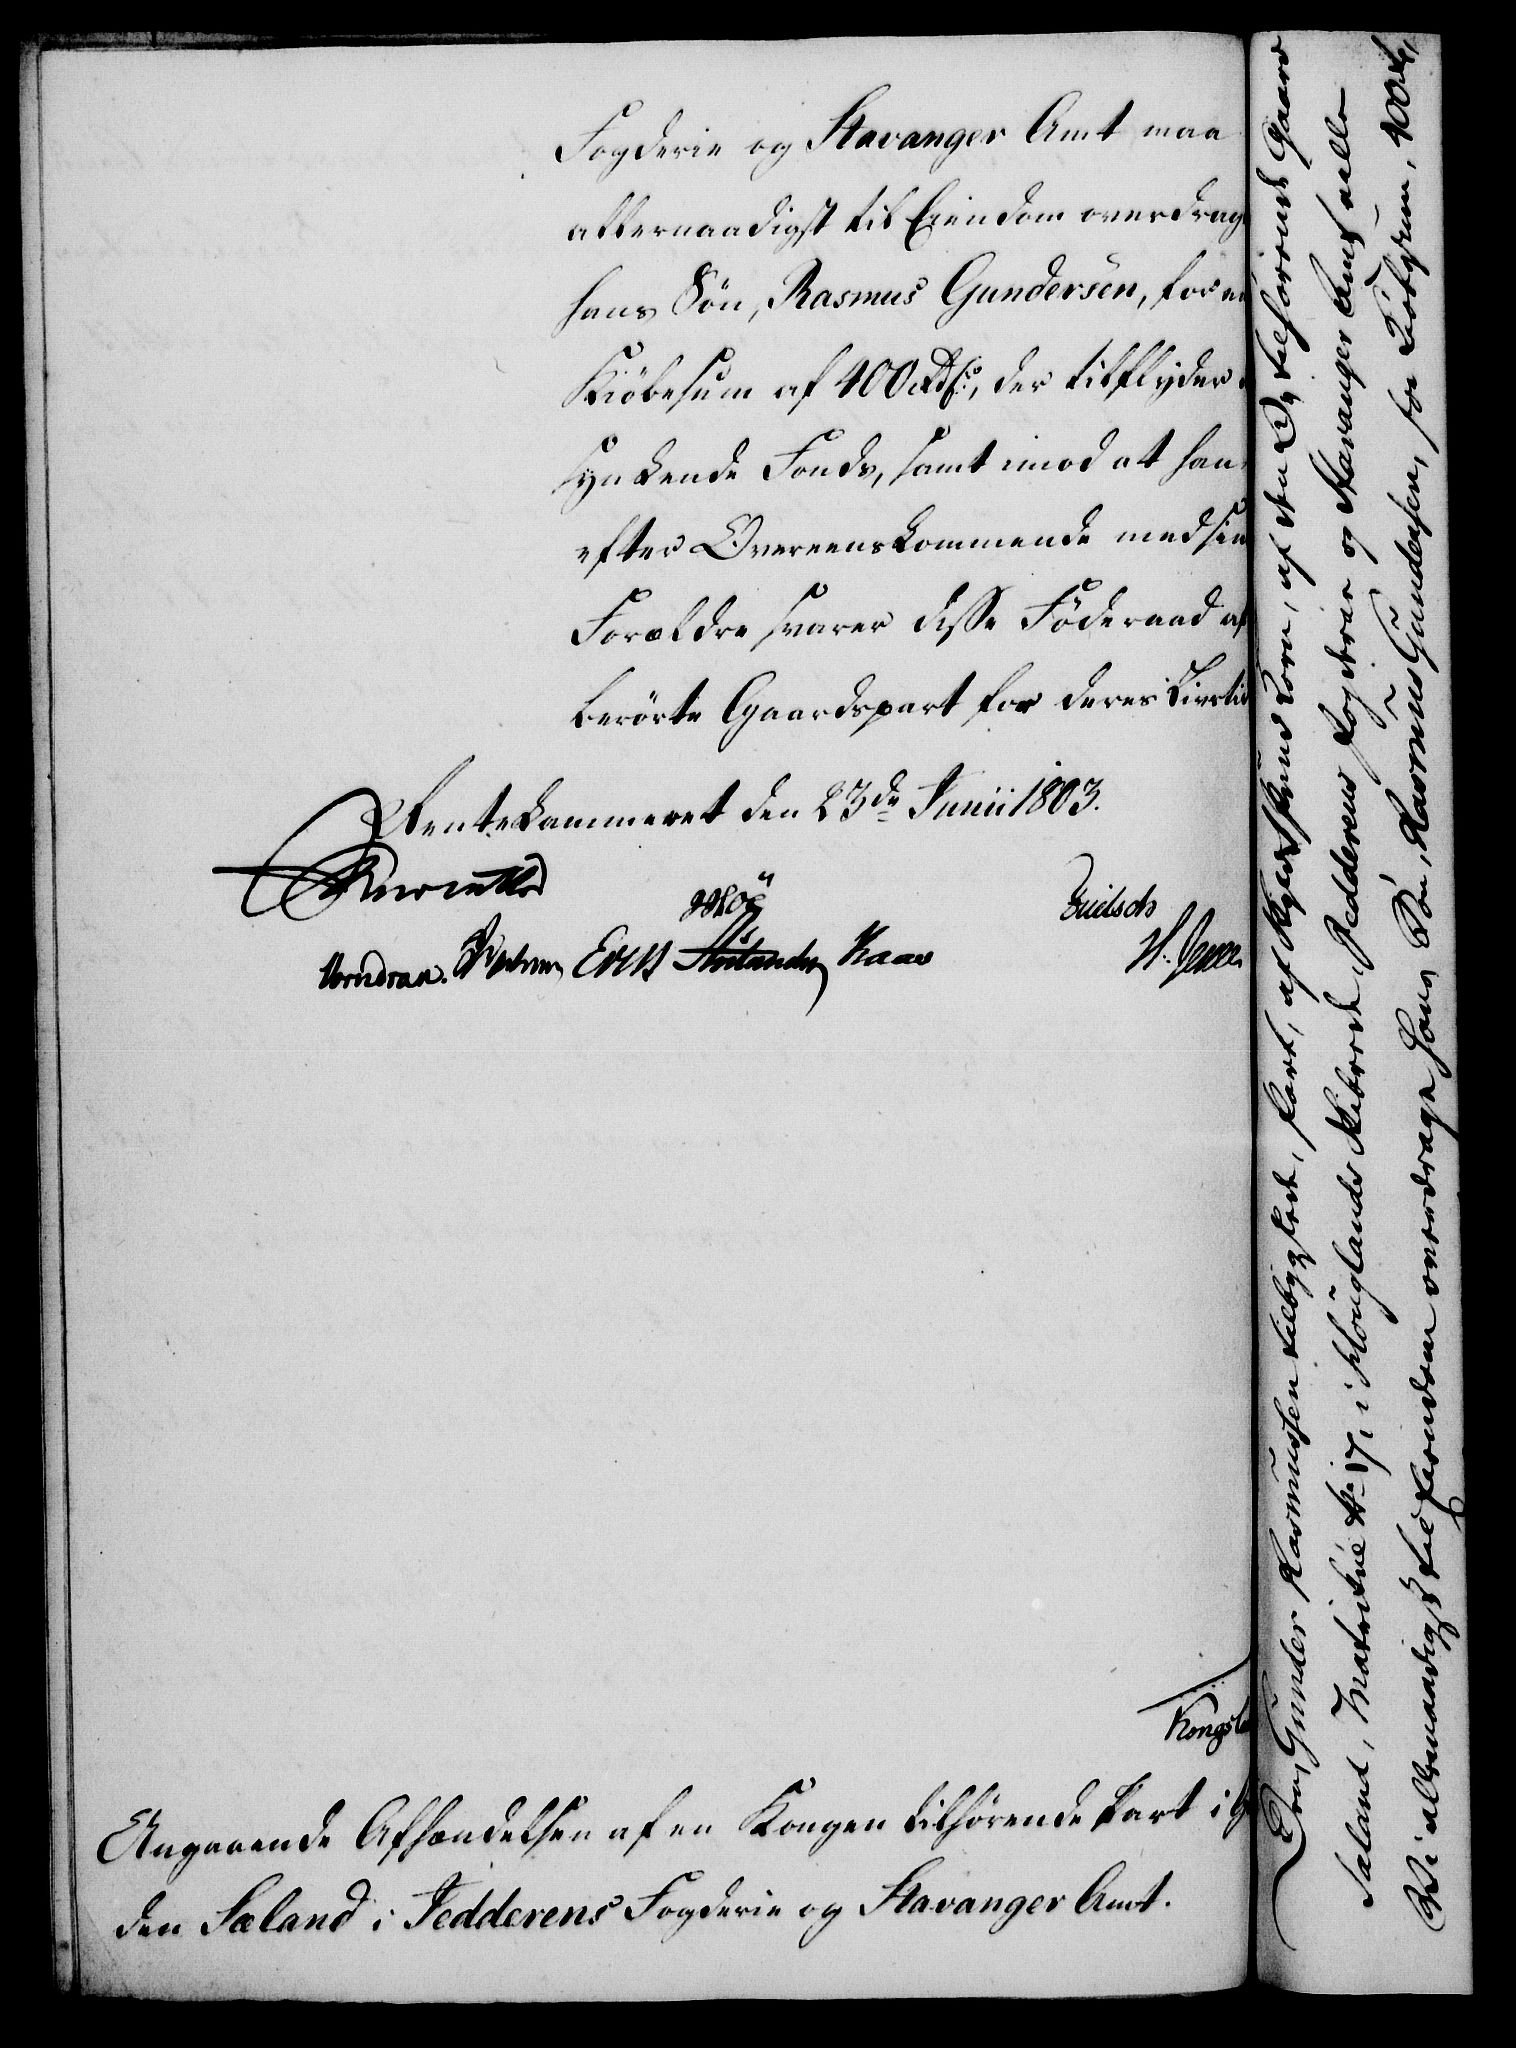 Fogderie og Stavanger Amt maa
allernaadigst til Eiendom overdrag
hans Søn, Rasmus Gundersen, for en
Kiøbesum af 400 Rdlr, der tilflyder
synkende Fonds, samt imod at han
efter Overeenskommende med sin
Forældre svarer disse Föderaad af
berörte Gaardspart for deres Livstid
Rentekammeret den 23de Junii 1803.
Vorndran. Kaas
Kongel
Angaaende Afhændelsen af en Kongen tilhørende Part i G
den Sæland i Jedderens Fogderie og Stavanger Amt.
Den, Gunder Rasmussen tilbygslede, Part, af Korn, af den Os tilhørende Gaard
Sæland, Matricul No 17, i Höylands Skibrede, Jedderens Fogderie og Stavanger Amt, ville
Vi allernaadigst til Eiendom overdrage hans Søn, Rasmus Gundersen, for Kiøbesum, 400 Rd,